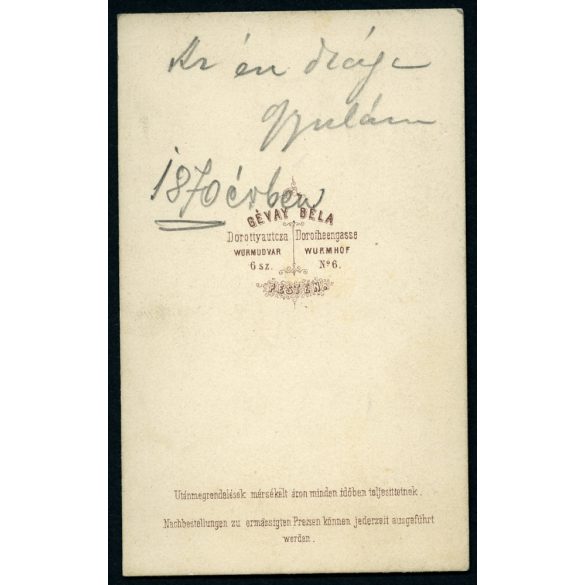 Az én drága
Gyulám
1870 évben
GÉVAY BÉLA
Dorottyautcza Dorotheengasse
WURMUDVAR WURMHOF
6 sz. No 6.
PESTEN.
Utánmegrendelések mársékelt áron minden időben teljesittetnek.
Nachbestellungen zu ermässigten Preisen können jederzeit ausgeführt
werden.